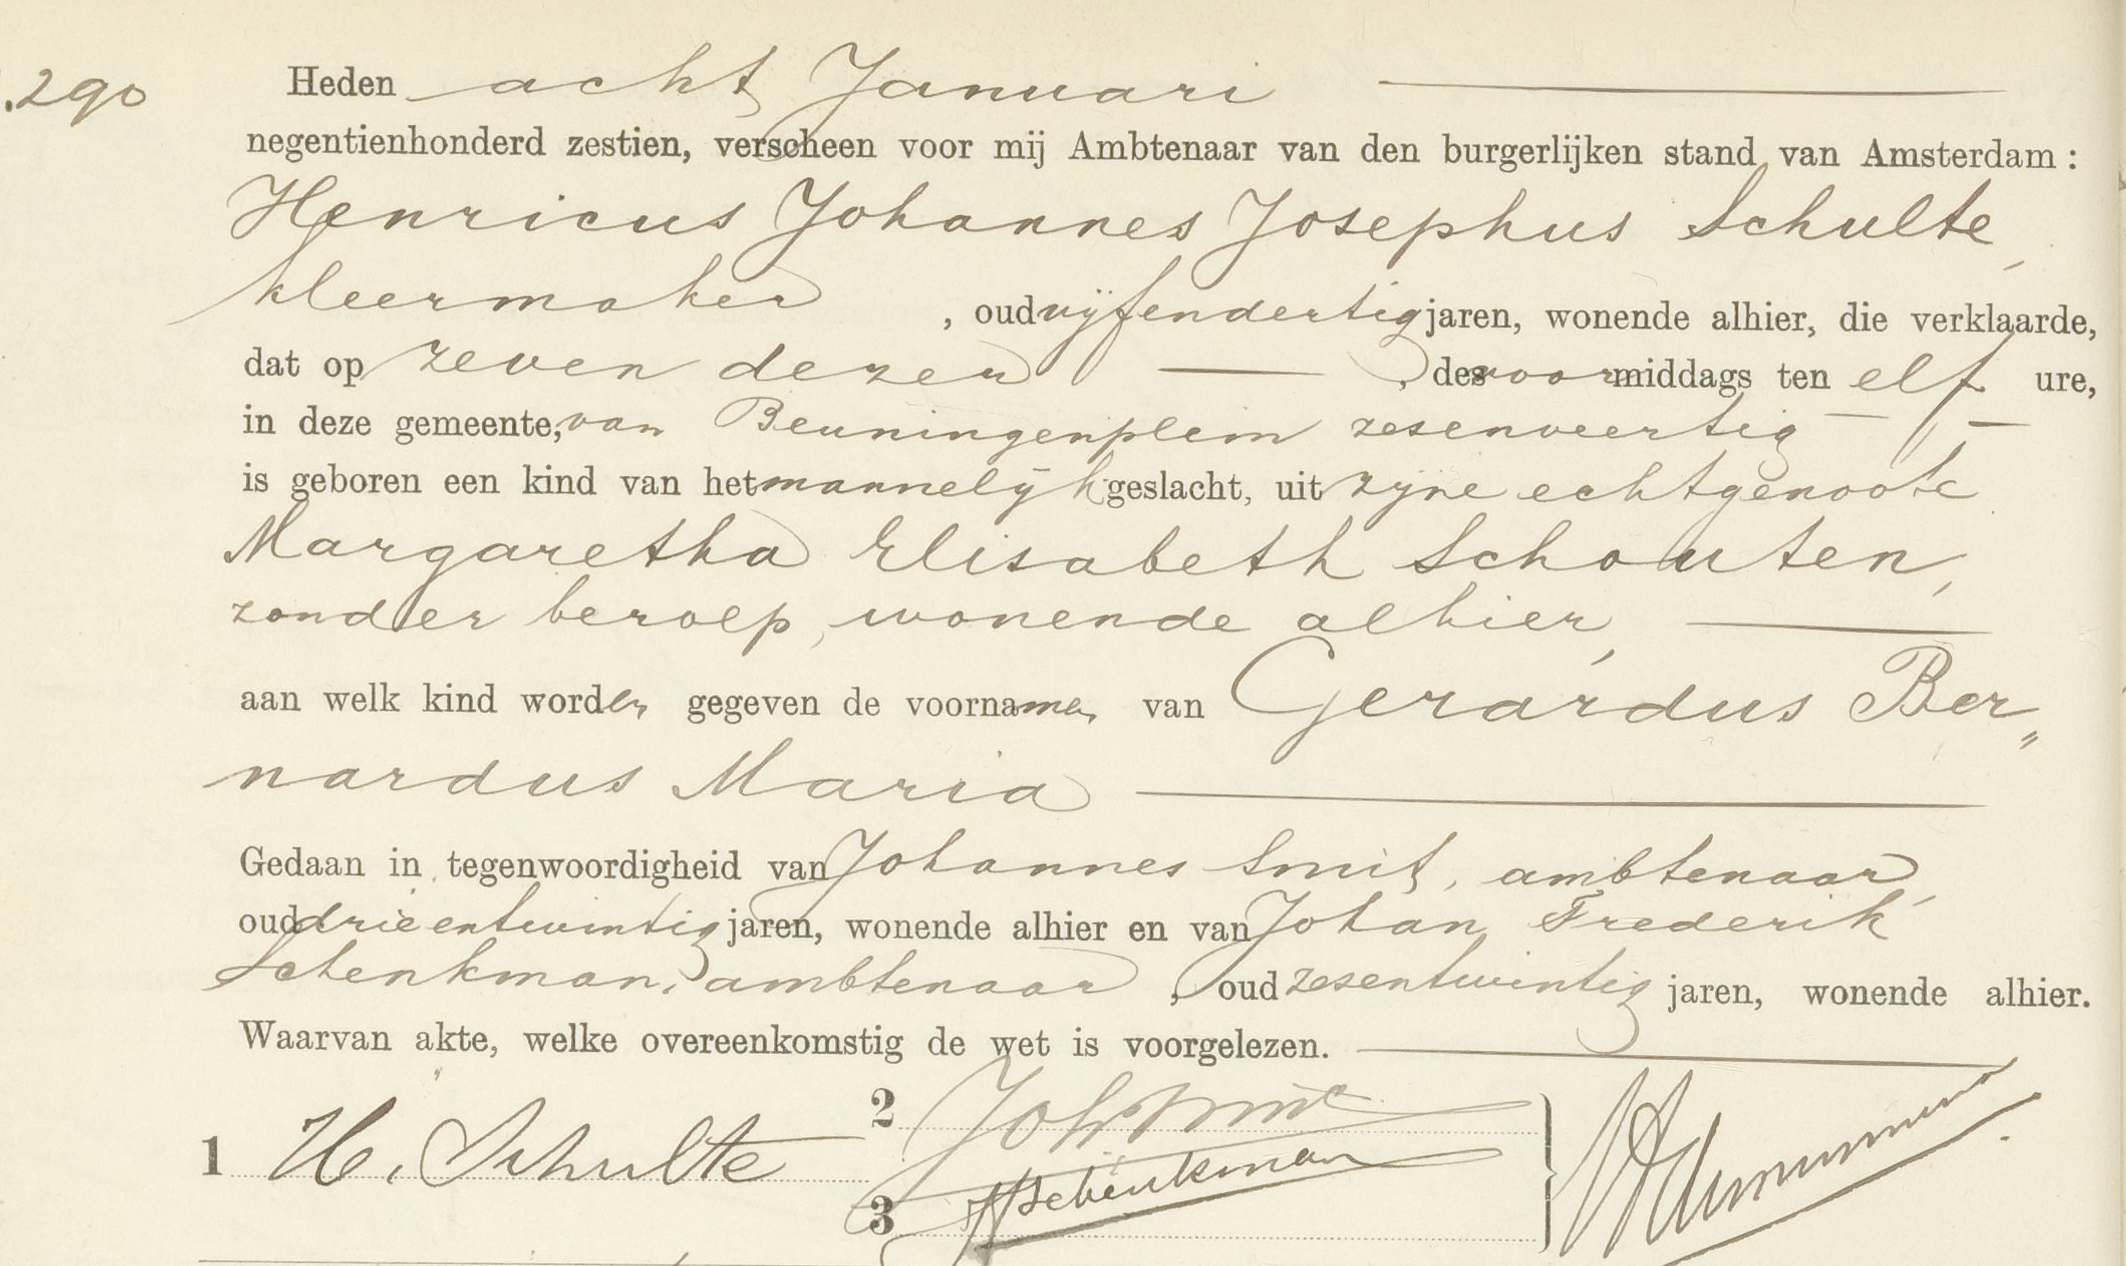 .290
Heden acht Januari
negentienhonderd zestien, verscheen voor mij Ambtenaar van den burgerlijken stand van Amsterdam :
Henricus Johannes Josephus Schulte,
kleermaker , oud vijfendertig jaren, wonende alhier, die verklaarde,
dat op zeven dezer , des voormiddags ten elf ure,
in deze gemeente, van Beuningenplein zesenveertig
is geboren een kind van het mannelijk geslacht, uit zijne echtgenoote
Margaretha Elisabeth Schouten,
zonder beroep, wonende alhier,
aan welk kind worden gegeven de voornamen van Gerardus Ber„
nardus Maria
Gedaan in tegenwoordigheid van Johannes Smit, ambtenaar,
oud drieentwintig jaren, wonende alhier en van Johan Frederik
Schenkman, ambtenaar , oud zesentwintig jaren, wonende alhier.
Waarvan akte, welke overeenkomstig de wet is voorgelezen.
1 H. Schulte
2 Joh Smit
3 Schenkman